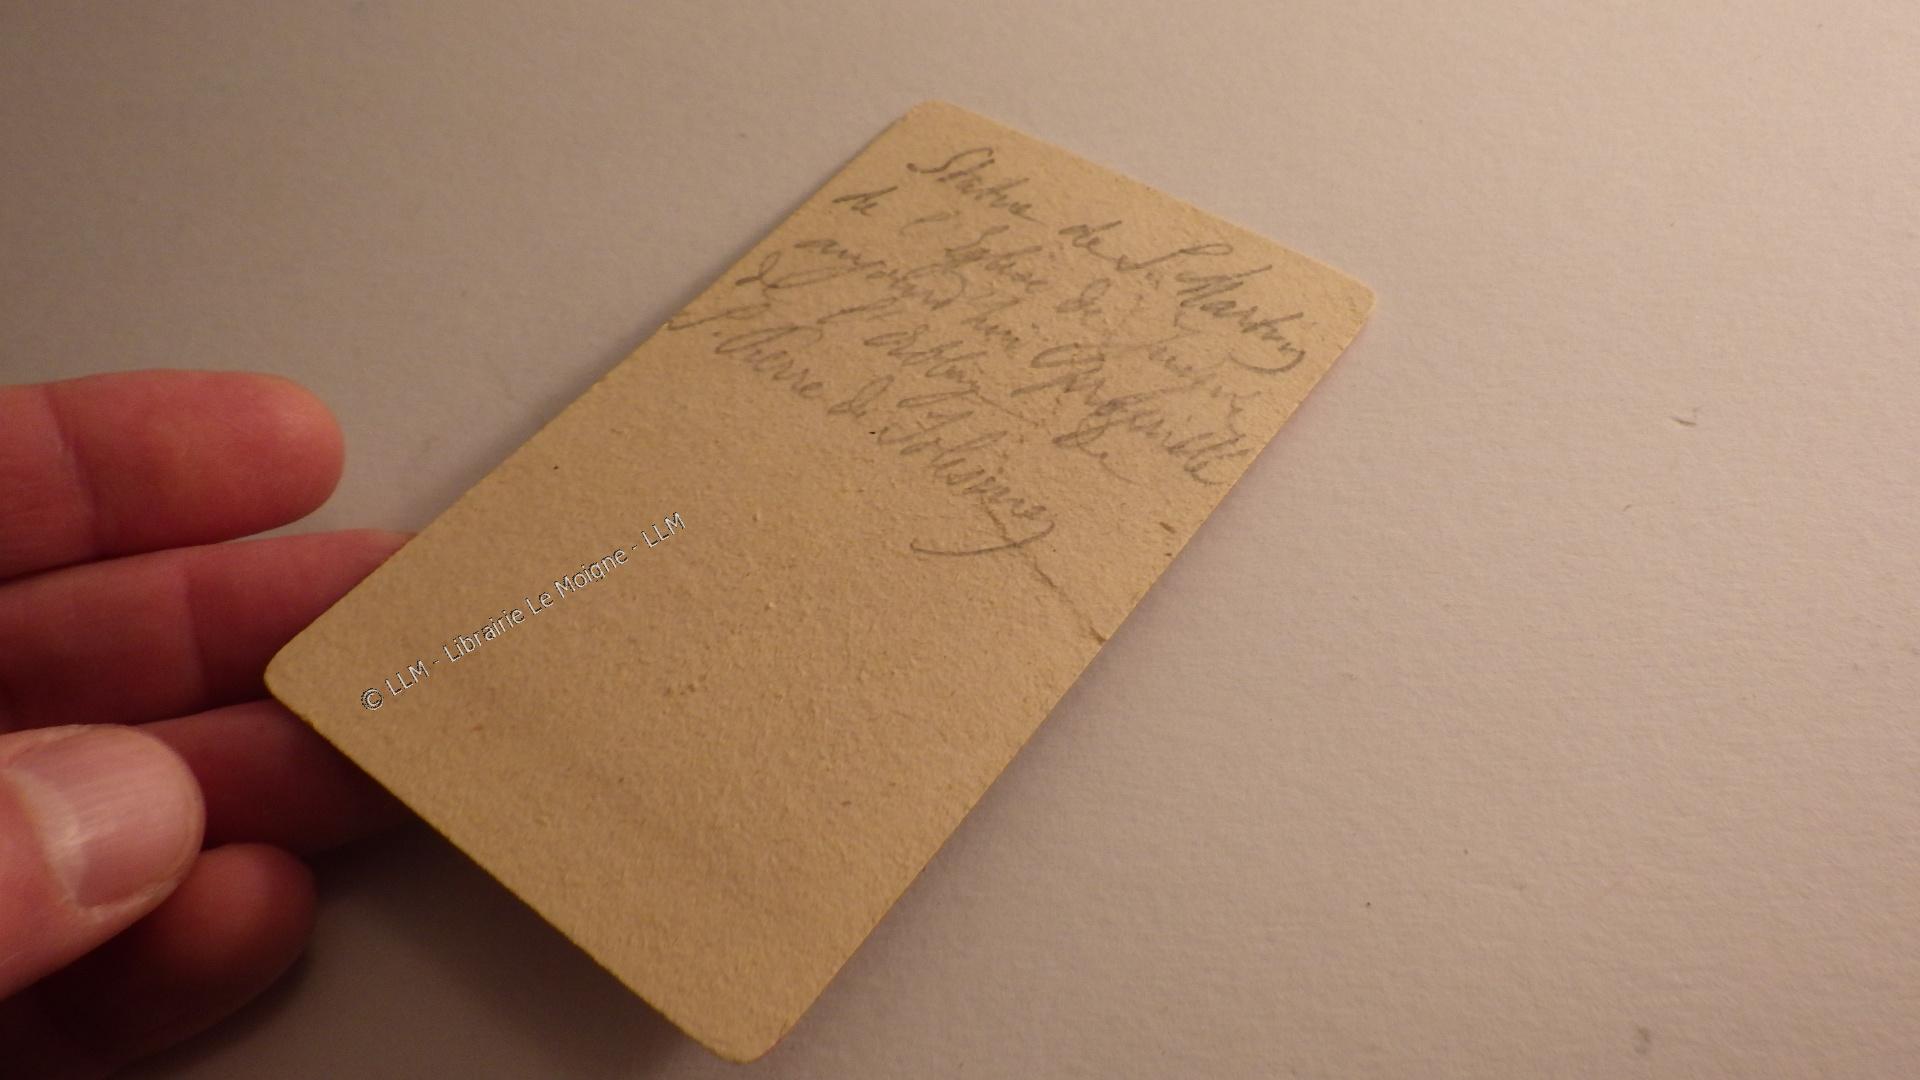 Statue de St. Martin
de l'Eglise de
aujourd'hui
de l'Abbaye de
S. Pierre de Solesmes
© LLM - Librairie Le Moigne - LLM